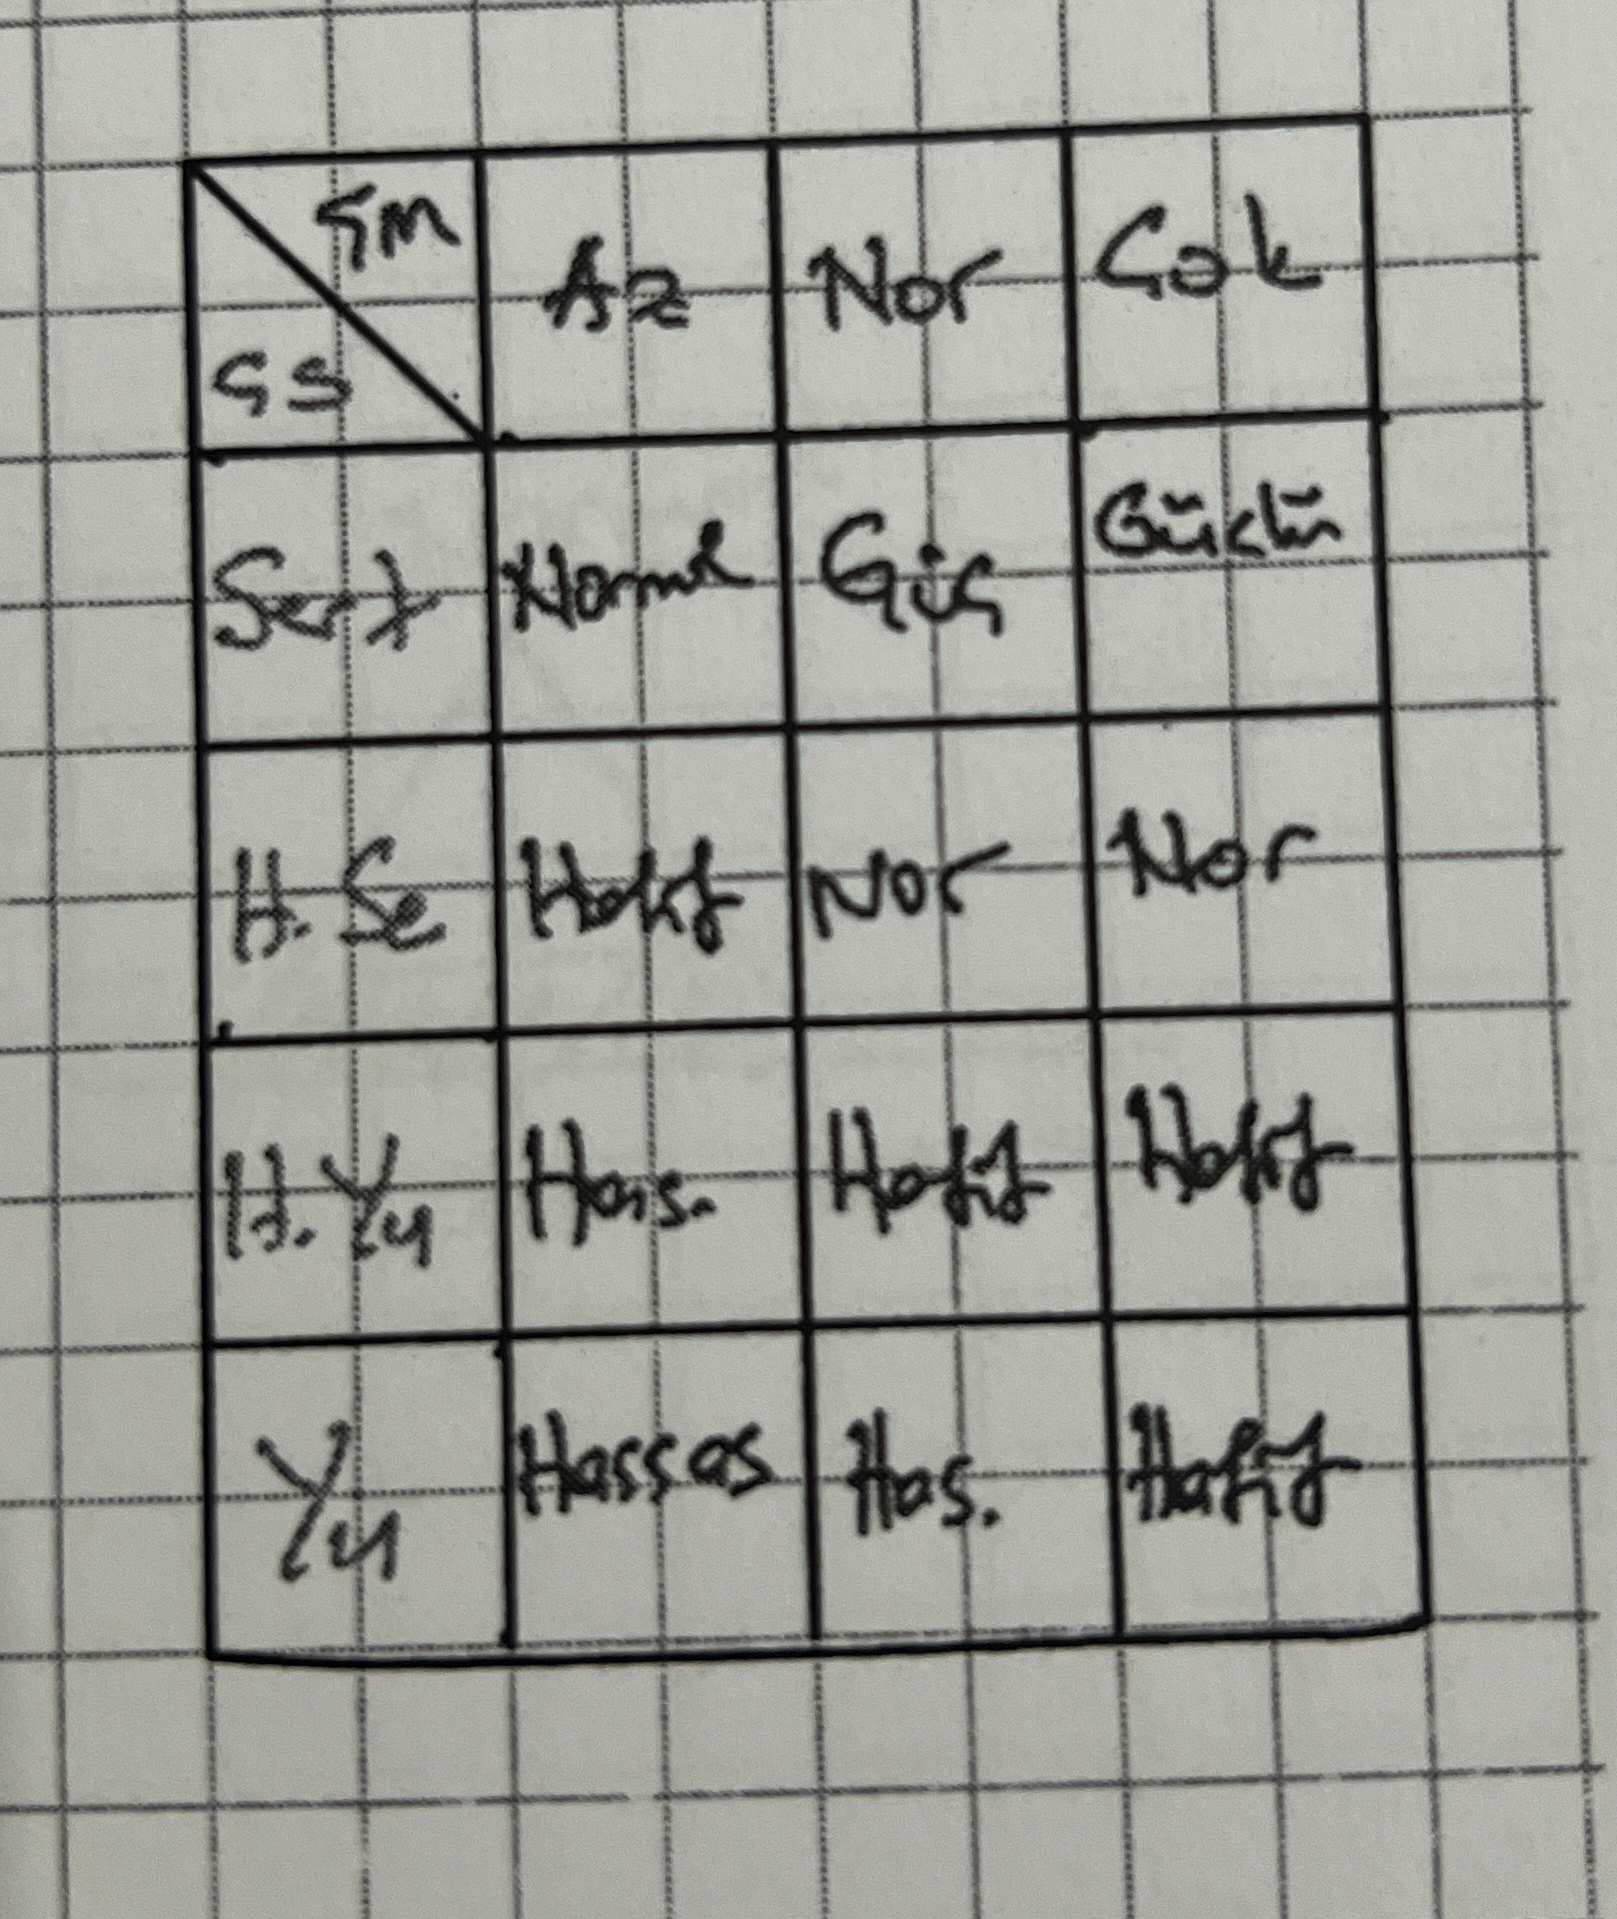 çm Az Nor Çok
çs
Sert Normal Güç Güçlü
H. Se Hafif Nor Nor
H. Yu Has. Hafif Hafif
Yu Hassas Has. Hafif